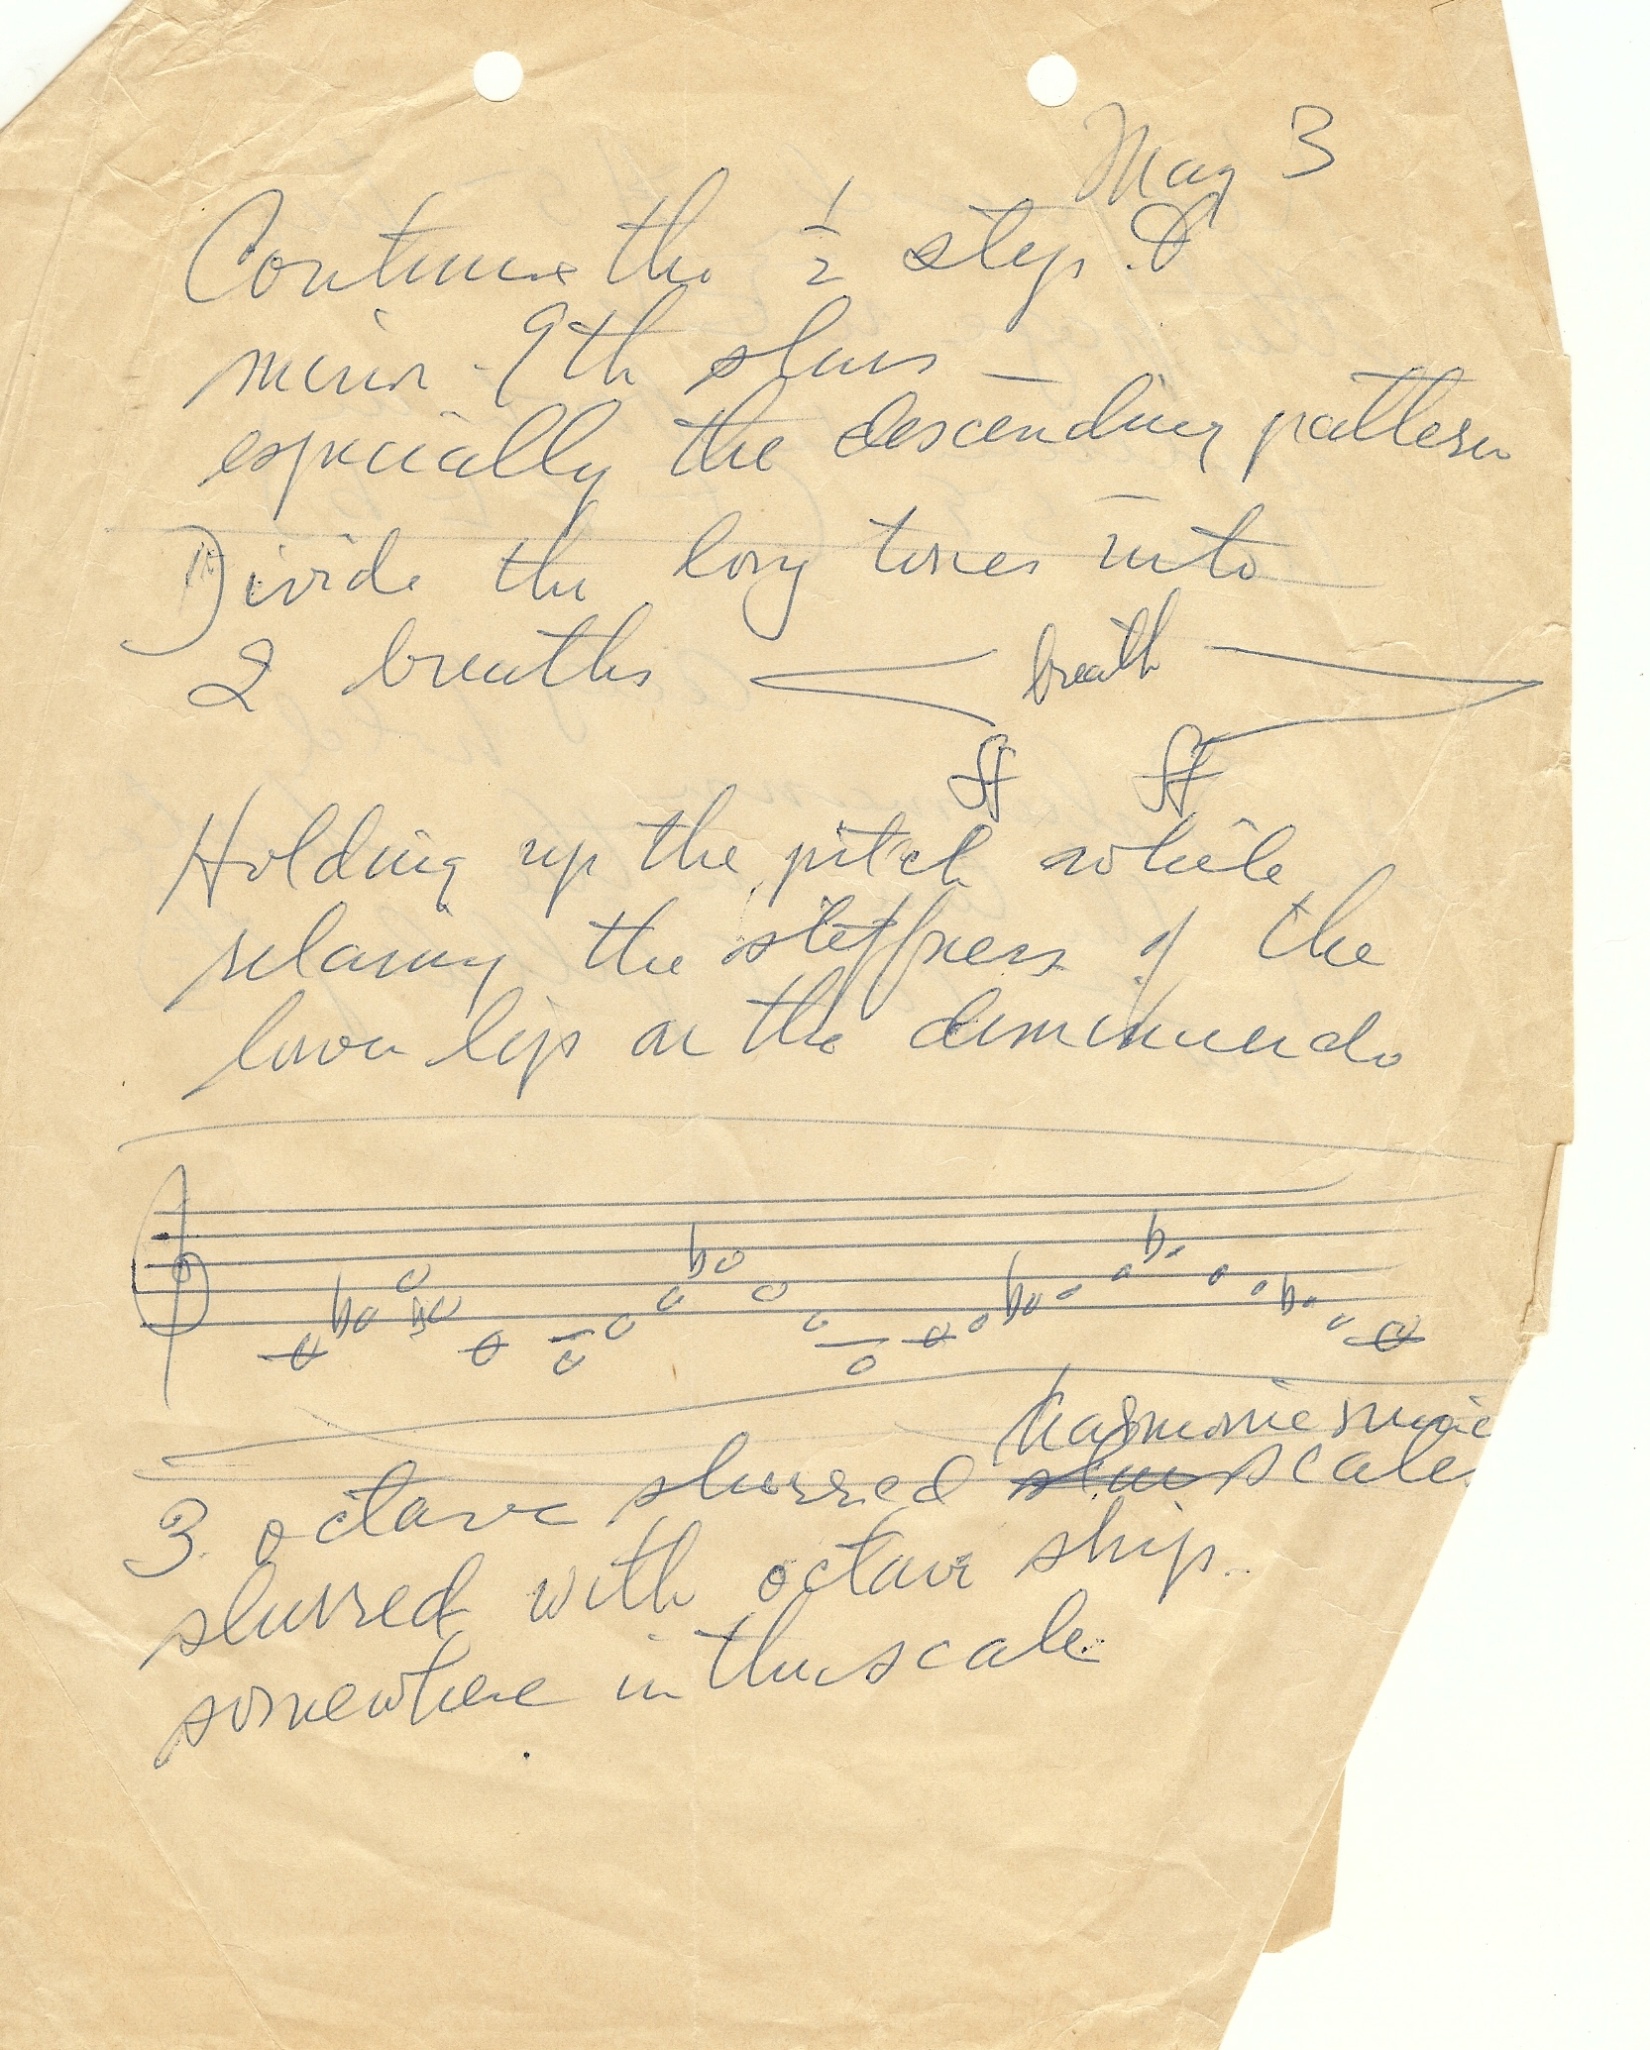 May 3
Continue the 1/2 step &
minor 9th slurs —
especially the descending pattern
Divide the long tones into
2 breaths breath
ff ff
Holding up the pitch while
relaxing the stiffness of the
lower lip on the diminuendo
harmonic
3 octave slurred scales
slurred with octave skip..
somewhere in the scale